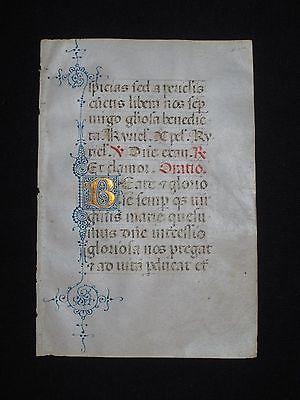 spicias sed a periculis
cunctis libera nos sep
virgo gl'iosa benedic
ta. kyriel. Xpel. Ky
riel. V Dñe exau. R
Et clamor. Oratio.
Beate & glorio
se semp qs vir
ginis marie quesu
mus dñe intercessio
gloriosa nos protegat
& ad vitã pducat et